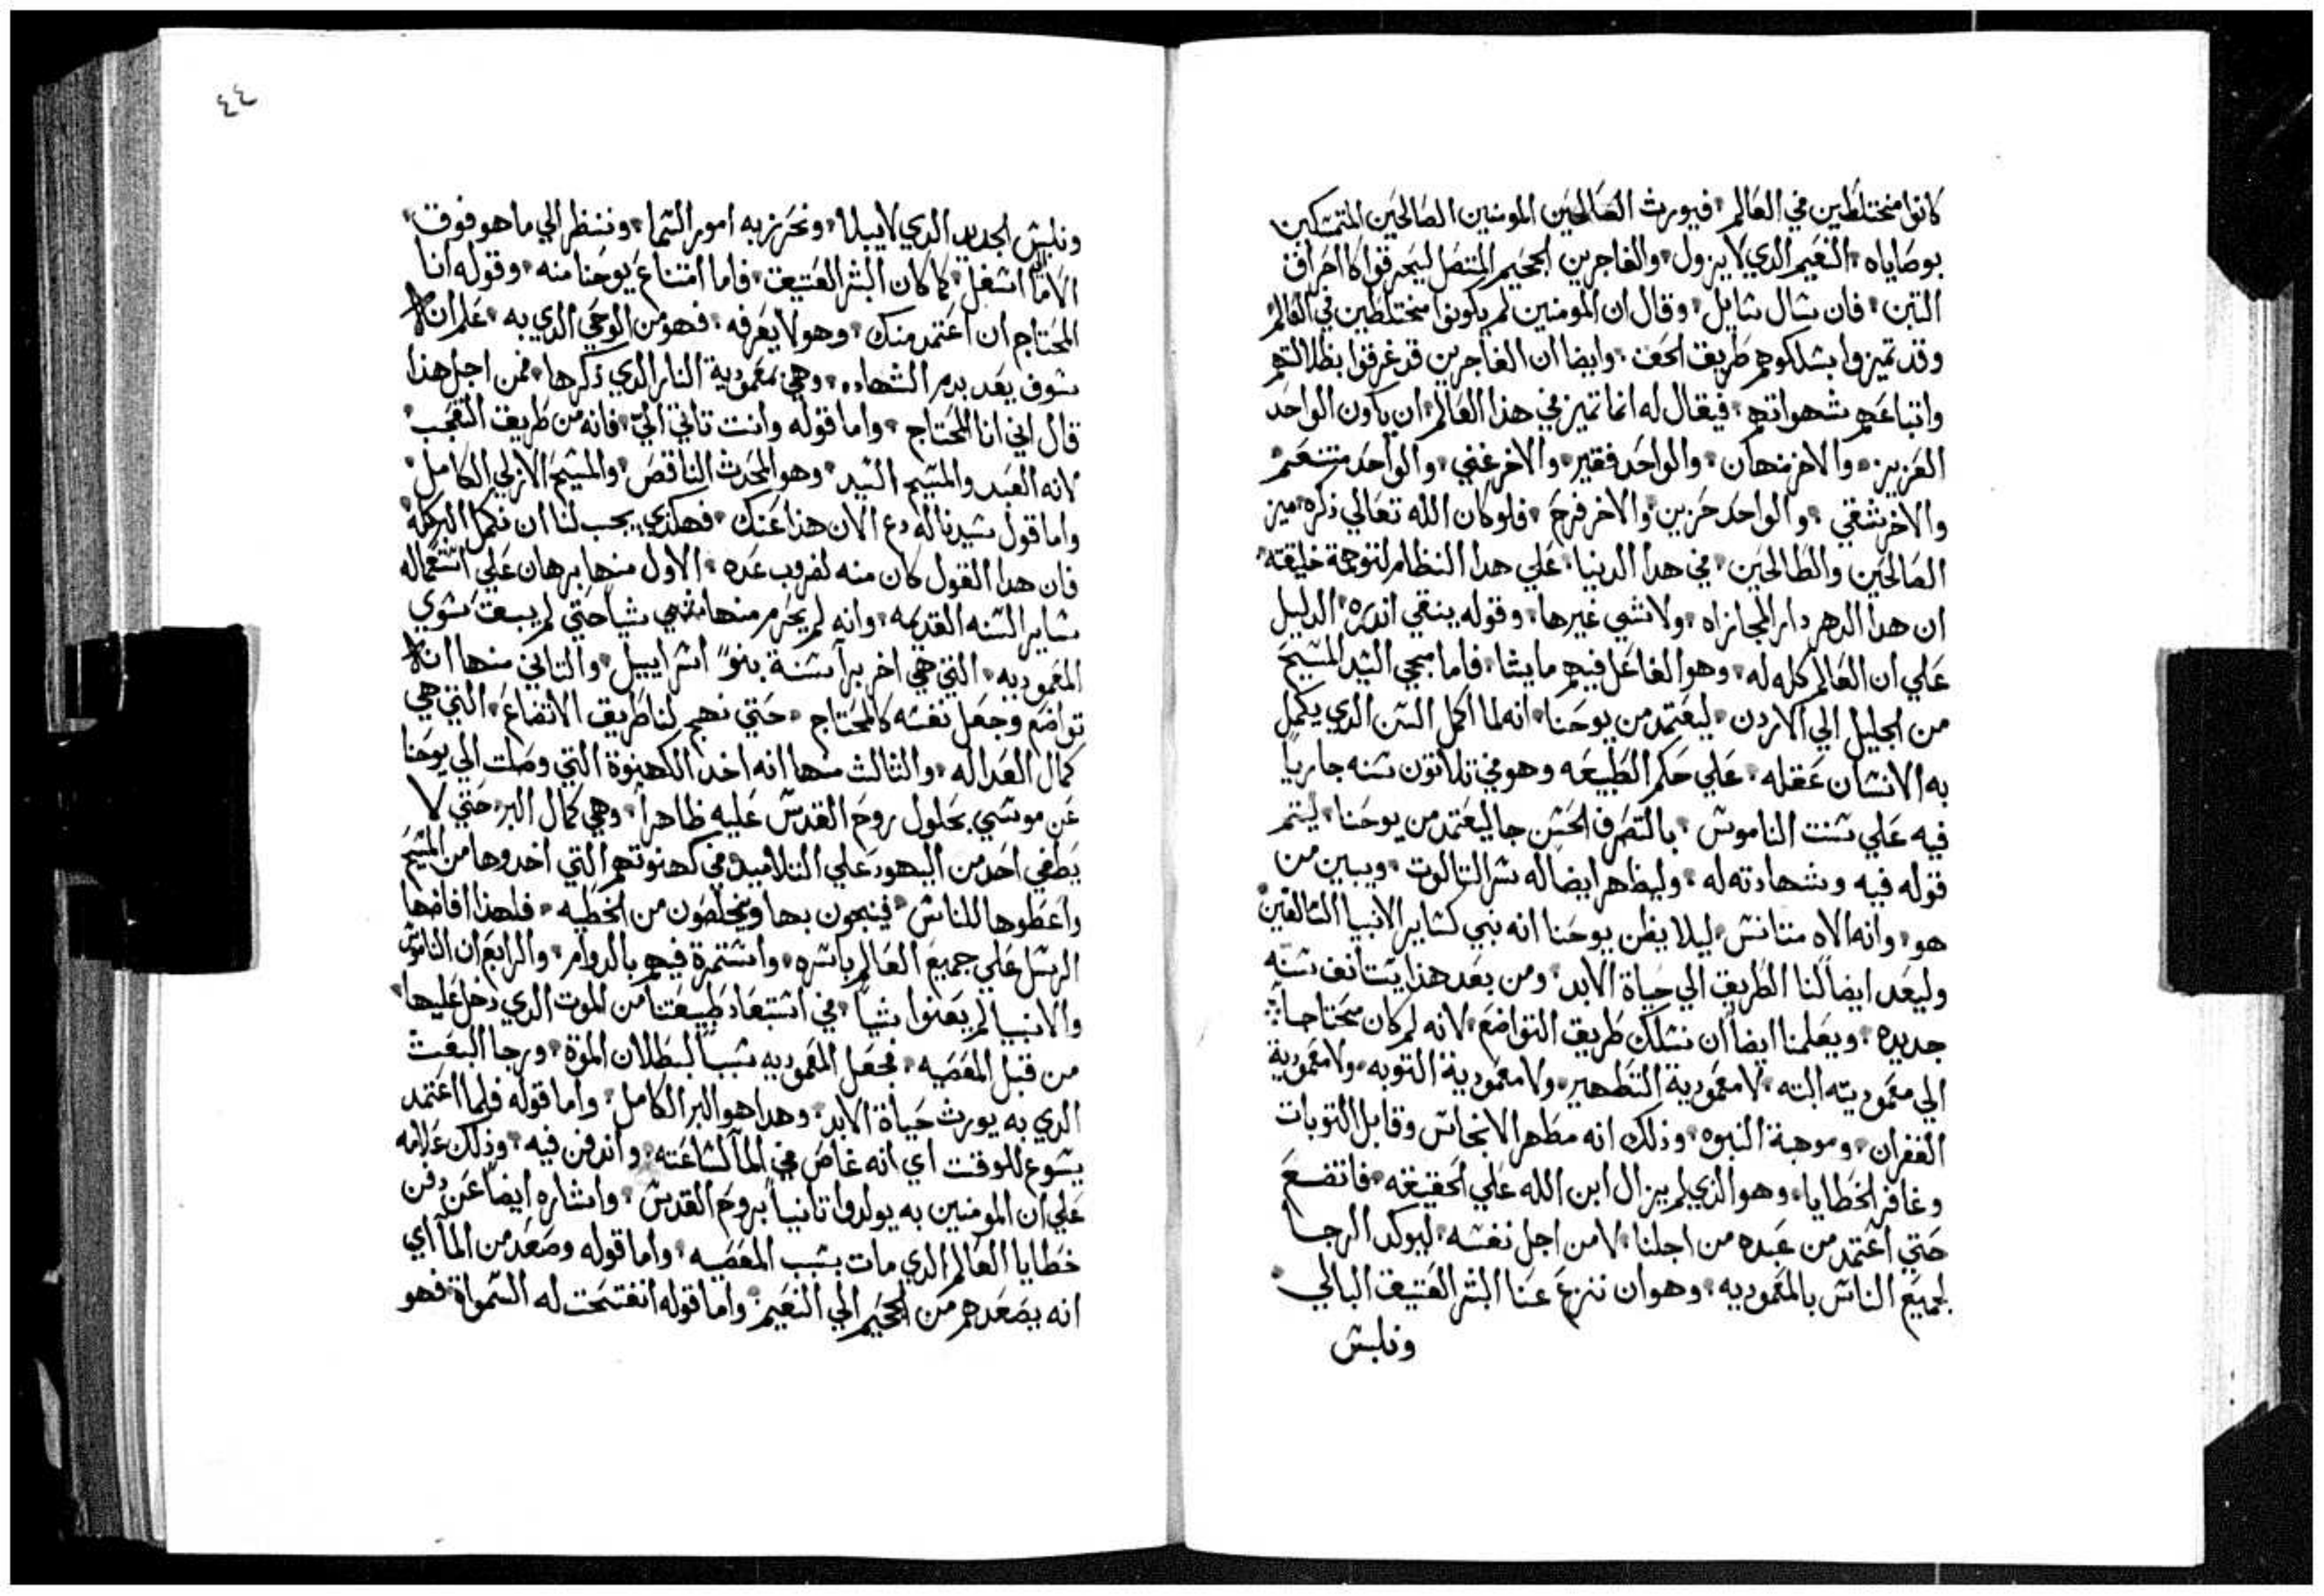 كانوا مختلطين في العالم فيورث العالمين المومنين الصالحين المتمسكين
بوصاياه النعيم الدي لا يزول والفاجرين الجحيم المتصل ليحرقوا كاحراق
التبن فان سال سايل وقال ان المومنين لم يكونوا مختلطين في العالم
وقد تميزوا بسلكوهم طريق الحق وايضا ان الفاجرين قد غرقوا بظلالتهم
واتباعهم شهواتهم فيقال له انما تميز في هذا العالم ان يكون الواحد
العزيز والاخر منهان والواحد فقير والاخر غني والواحد متنعم
والاخر شقي والواحد حزين والاخر فرح فلو كان الله تعالي ذكره ميز
الصالحين والطالحين في هدا الدنيا علي هدا النظام لتوهمة خليقته
ان هدا الدهر دار المجازاه ولا شي غيرها وقوله ينقي اندره الدليل
علي ان العالم كله له وهو الفاعل فيهم ما يشا فاما مجي السيد المسيح
من الجليل الي الاردن ليعتمد من يوحنا انه لما اكمل السن الدي يكمل
به الانسان عقله علي حكم الطبيعه وهو في تلاتون سنه جارياً
فيه علي سنت الناموس بالتصرف الحسن جا ليعتمد من يوحنا ليتم
قوله فيه وشهادته له وليظهر ايضا له سر التالوت ويبين من
هو وانه الاه متانس ليلا يظن يوحنا انه نبي كساير الانبيا السالفين
وليعد ايضاً لنا الطريق الي حياة الابد ومن بعد هذا يستانف سنه
جديده ويعلمنا ايضاً ان نسلك طريق التواضع لانه لم كان محتاجاً
الي معموديته البته لا معمودية التطهير ولا معمودية التوبه ولا معمودية
الغفران وموهبة النبوه وذلك انه مطهر الانجاس وقابل التوبات
وغافر الخطايا وهو الذي لم يزال ابن الله علي الحقيقه فاتضع
حتي اعتمد من عبده من اجلنا لا من اجل نفسه ليوكد الرجا
لجميع الناس بالمعموديه وهو ان ننزع عنا البشر العتيق البالي
ونلبس
٤٤
ونلبس الجديد الدي لا يبلا ونحرز به امور السما وننظر الي ما هو فوق
اسفل كما كان البشر العتيق فاما امتناع يوحنا منه وقوله انا
المحتاج ان اعتمد منك وهو لا يعرفه فهو من الوحي الدي به علم انه
سوف يعمد بدم الشهاده وهي معمودية النار الدي ذكرها فمن اجل هذا
قال اني انا المحتاج واما قوله وانت تاتي اليّ فانه من طريق التعجب
لانه العبد والمسيح السيد وهو المحدث الناقص والمسيح الازلي الكامل
واما قول سيدنا له دع الان هذا عنك فهكدي يجب لنا ان نكمل البر كله
فان هدا القول كان منه لضروب عده الاول منها برهان علي استعماله
ساير السنه القديمه وانه لم يحرم منها شياً حتي لم يبق سوي
المعموديه التي هي اخر بر اسنة بنو اسراييل والتاني منها انه
تواضع وجعل نفسه كالمحتاج حتي نهج لنا طريق الاتضاع التي هي
كمال العداله والثالث منها انه اخد الكهنوة التي وصلت الي يوحنا
عن موسي بحلول روح القدس عليه ظاهراً وهي كمال البر حتي لا
يطغي احد من اليهود علي التلاميد في كهنوتهم التي اخدوها من المسيح
واعطوها للناس فينجون بها ويخلصون من الخطيه فلهذا افاضها
الرسل علي جميع العالم باسره واستمرة فيهم بالدوام والرابع ان الناموس
والانبيا لم يغنوا شياً في استبعاد طبيعتنا من الموت الدي دخل عليها
من قبل المعصيه فجعل المعموديه سبباً لبطلان الموة ورجا البعث
الدي به يورث حياة الابد وهدا هو البر الكامل واما قوله فلما اعتمد
يسوع للوقت اي انه غاص في الما لساعته واندفن فيه وذلك علامه
علي ان المومنين به يولدوا تانياً بروح القدس واشاره ايضاً عن دفن
خطايا العالم الدي مات بسبب المعصيه واما قوله وصعد من الما اي
انه يصعدهم من الجحيم الي النعيم واما قوله انفتحت له السمواة فهو